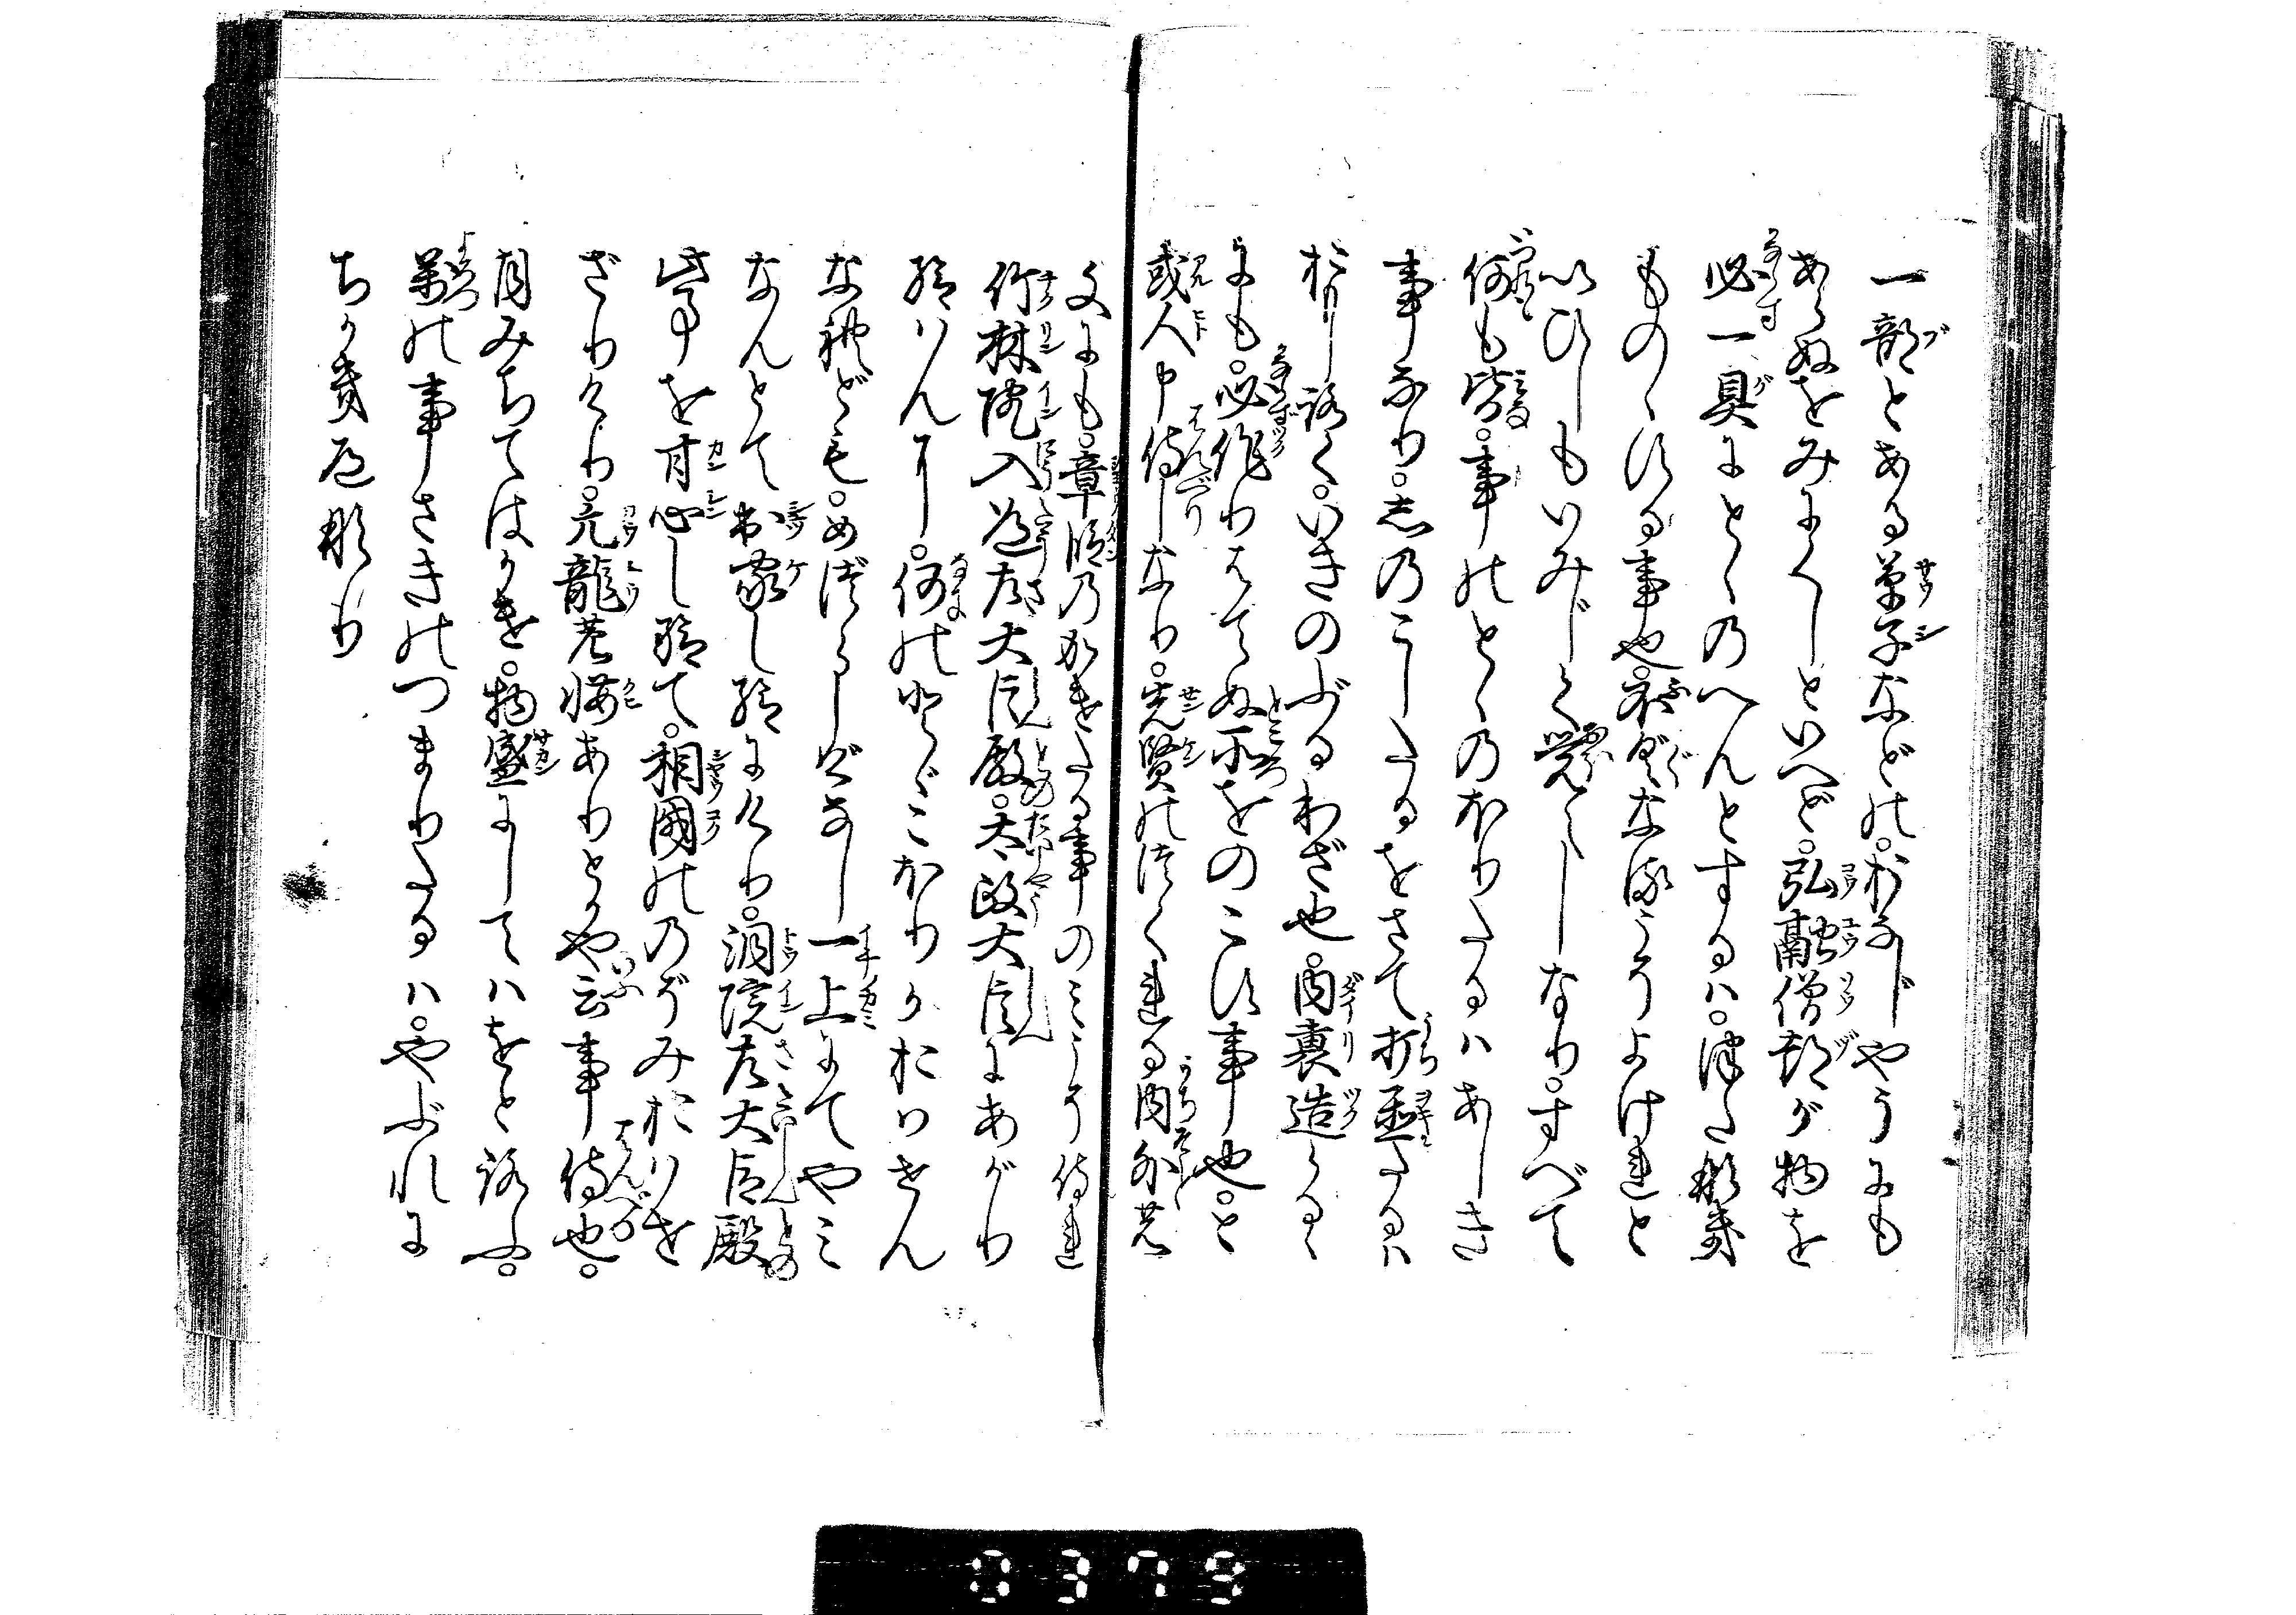 一部とある草子などの。おなじやうにも
あらぬをみにくしといへど。弘融僧都が物を
必一具にとゝのへんとするは。つたなき
ものゝする事也。不具なるこそよけれと
いひしもいみじく覚えしなり。すべて
何も皆。事のとゝのほりたるはあしき
事なり。しのこしたるをさて打置たるは
おもしろく。いきのぶるわざ也。内裏造らるゝ
にも。必作りはてぬ所をのこす事也。と
或人申侍しなり。先賢のつくれる内外の
文にも。章段のかけたる事のみこそ侍れ
竹林院入道左大臣殿。太政大臣にあがり
給はんに。何のとゞこほりかおはせん
なれども。めづらしげなし一上にてやみ
なんとて出家し給にけり。洞院左大臣殿
此事を甘心し給て。相国ののぞみおはせ
ざりけり。亢龍の悔ありとかや云事侍也。
月みちてはかけ。物盛にしてはをとろふ。
万の事さきのつまりたるは。やぶれに
ちかき道なり
0379